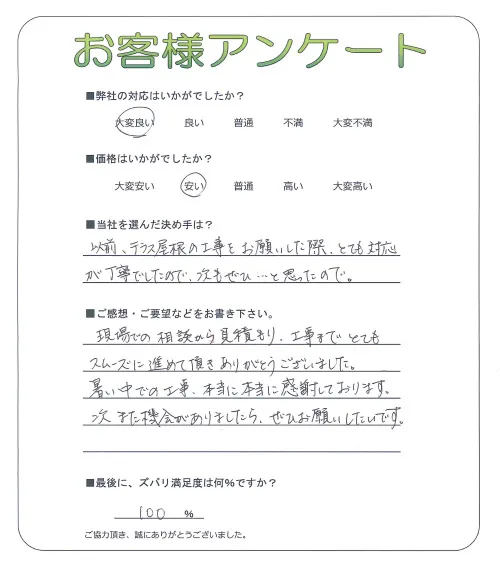 お客様アンケート
■弊社の対応はいかがでしたか?
大変良い 良い 普通 不満 大変不満
■価格はいかがでしたか?
大変安い 安い 普通 高い 大変高い
■当社を選んだ決め手は?
以前、テラス屋根の工事をお願いした際、とても対応
が丁寧でしたので、次もぜひ…と思ったので。
■ご感想・ご要望などをお書き下さい。
現場での相談から見積もり、工事までとても
スムーズに進めて頂きありがとうございました。
暑い中での工事、本当に本当に感謝しております。
次また機会がありましたら、ぜひお願いしたいです。
■最後に、ズバリ満足度は何%ですか?
100 %
ご協力頂き、誠にありがとうございました。